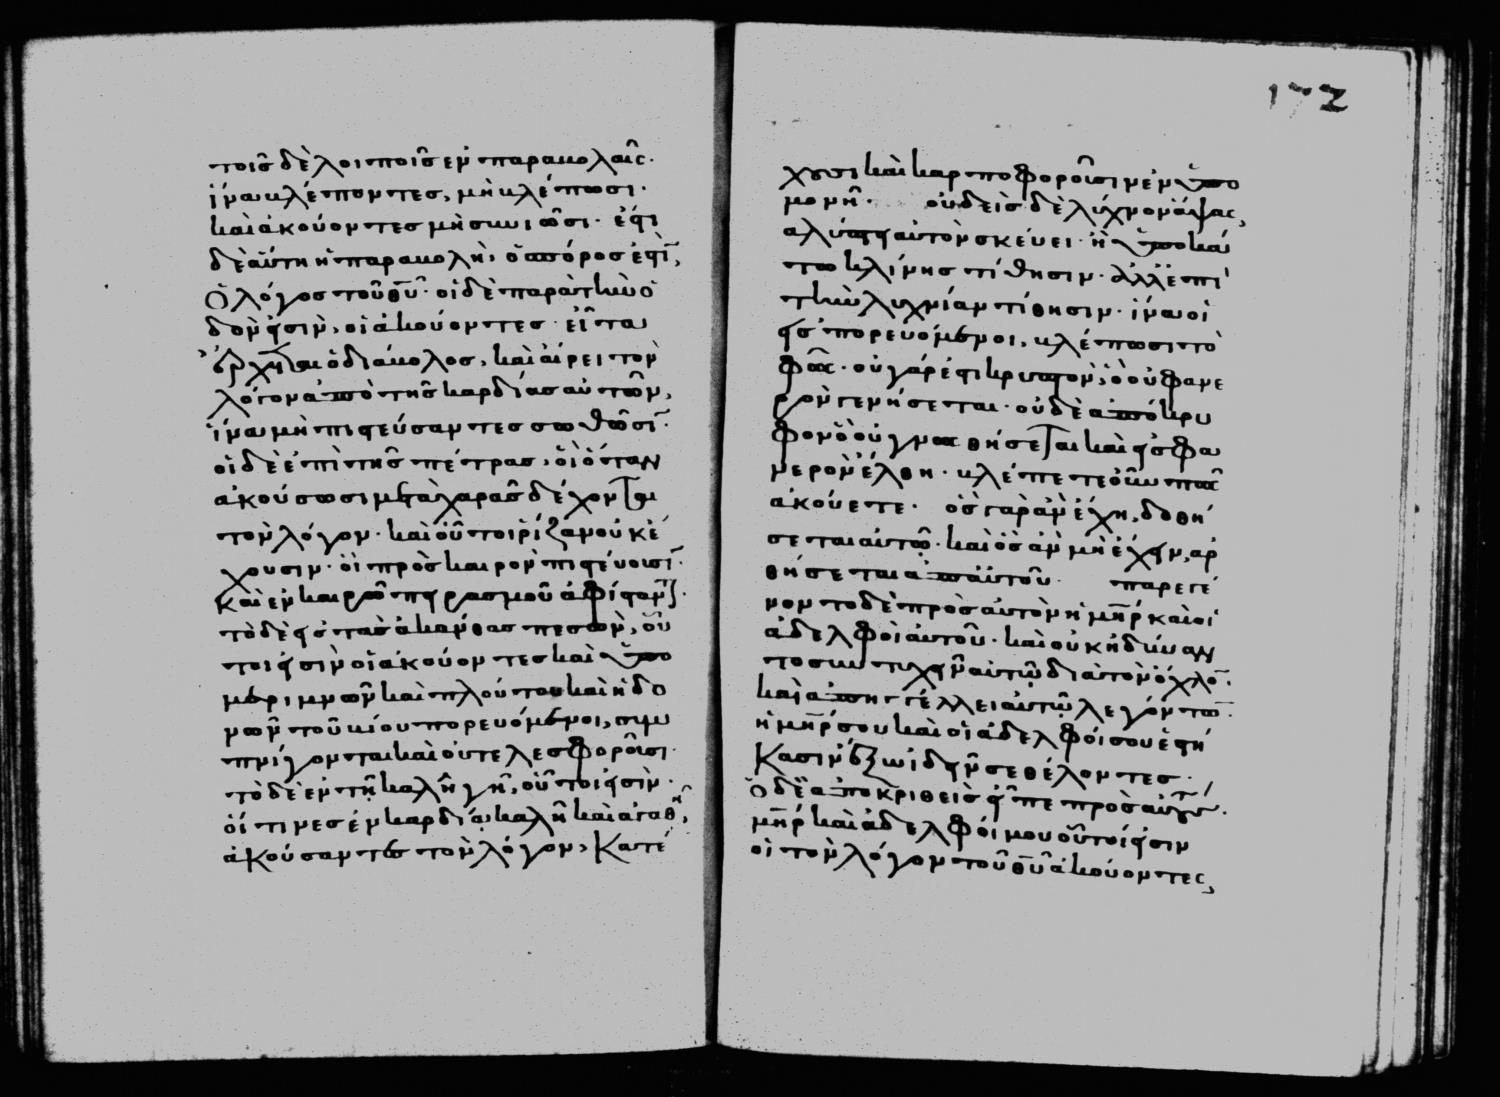 τοῖς δὲ λοιποῖς ἐν παραβολαῖς·
ἵνα βλέποντες, μὴ βλέπωσι·
καὶ ἀκούοντες μὴ συνιῶσι· ἔστι
δὲ αὕτη ἡ παραβολὴ, ὁ σπόρος ἐστὶν,
ὁ λόγος τοῦ θυ· οἱ δὲ παρὰ τὴν ὁ
δὸν εἰσὶν, οἱ ἀκούοντες· εἶτα
ἔρχεται ὁ διάβολος, καὶ αἴρει τὸν
λόγον ἀπὸ τῆς καρδίας αὐτῶν,
ἵνα μὴ πιστεύσαντες σωθῶσιν·
οἱ δὲ ἐπὶ τῆς πέτρας, οἳ ὅταν
ἀκούσωσι μετὰ χαρᾶς δέχονται
τὸν λόγον· καὶ οὗτοι ῥίζαν οὐκ ἔ
χουσιν· οἳ πρὸς καιρὸν πιστεύουσιν·
καὶ ἐν καιρῶ πειρασμοῦ ἀφίστανται·
τὸ δὲ εἰς τὰς ἀκάνθας πεσὸν, οὗ
τοι εἰσὶν οἱ ἀκούοντες καὶ ὑπὸ
μεριμνῶν καὶ πλούτου καὶ ἡδο
νῶν τοῦ βίου πορευόμενοι, συμ
πνίγονται καὶ οὐ τελεσφοροῦσι·
τὸ δὲ ἐν τῆ καλῆ γῆ, οὗτοι εἰσὶν·
οἵτινες ἐν καρδία καλῆ καὶ ἀγαθῆ,
ἀκούσαντες τὸν λόγον, κατέ
172
χουσι καὶ καρποφοροῦσιν ἐν ὑπο
μονῆ· οὐδεὶς δὲ λύχνον ἅψας,
καλύπτει αὐτὸν σκεύει· ἢ ὑποκά
τω κλίνης τίθησιν· ἀλλ' ἐπὶ
τὴν λυχνίαν τίθησιν· ἵνα οἱ
εἰσπορευόμενοι, βλέπωσι τὸ
φῶς· οὐ γάρ ἐστι κρυπτὸν, ὃ οὐ φανε
ρὸν γενήσεται· οὐδὲ ἀπόκρυ
φον ὃ οὐ γνωσθήσεται καὶ εἰς φα
νερὸν ἔλθη· βλέπετε οὖν πῶς
ἀκούετε· ὃς γὰρ ἂν ἔχη, δοθή
σεται αὐτῶ· καὶ ὃς ἂν μὴ ἔχη, ἀρ
θήσεται ἀπ' αὐτοῦ· παρεγέ
νοντο δὲ πρὸς αὐτὸν ἡ μηρ καὶ οἱ
ἀδελφοὶ αὐτοῦ· καὶ οὐκ ἠδύναν
το συντυχεῖν αὐτῶ διὰ τὸν ὄχλον·
καὶ ἀπηγγέλλει αὐτῶ λεγόντων·
ἡ μηρ σου καὶ οἱ ἀδελφοί σου ἑστή
κασιν ἔξω ἰδεῖν σε θέλοντες·
ὁ δὲ ἀποκριθεὶς εἶπε πρὸς αὐτούς·
μηρ καὶ ἀδελφοί μου οὗτοί εἰσιν
οἱ τὸν λόγον τοῦ θυ ἀκούοντες,